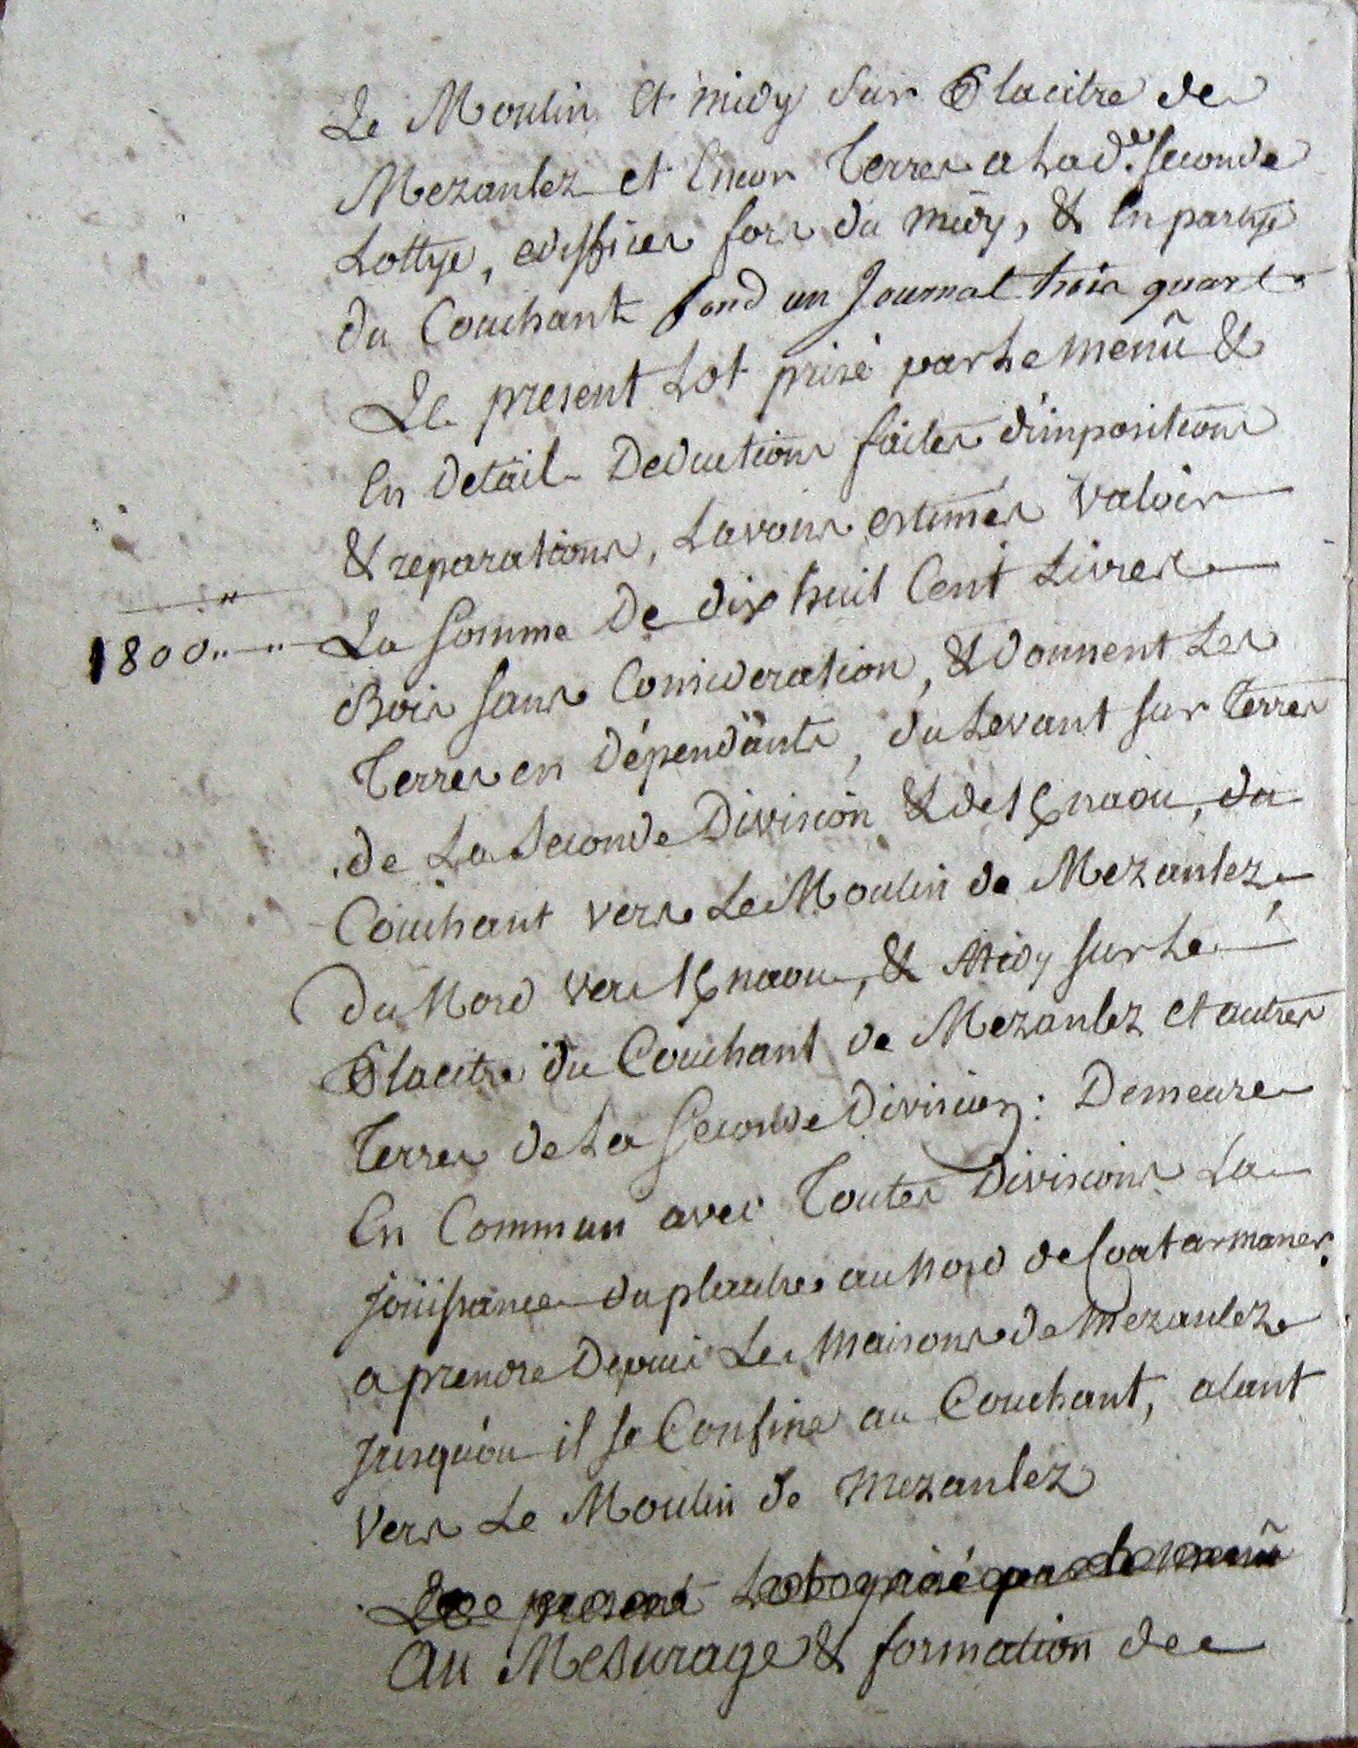 Le Moulin et midy sur Placitre de
Mezanlez et encor Terres a Lad.e seconde
Lottye, ediffices fors du midy, & En partye
du Couchant fond un Journal trois quarts
Le present Lot prisé par Le menü &
En Detäil Deductions faites d'impositions
& reparations, Lavons estimés valoir
1800.. .. La Somme De dix huit Cent Livres
Bois sans Consideration, & donnent Les
Terres en dépendants, du Levant sur Terres
de La Seconde Division & de Kknaou, du
Couchant vers Le Moulin de Mezanlez,
Du Nord vers Kknaou, & Midy sur Le
Placitre du Couchant de Mezanlez et autres
Terres de La Seconde Division : Demeure
En Commun avec Toutes Divisions La
Joüissance du placitre au nord de Coatarmaner
a prendre Depuis Les maisons de Mezanlez
Jusqu'ou il se Confine au Couchant, alant
vers Le Moulin de Mezanlez
Le present Lot prisé par Le menü
Au Mesurage & formation de